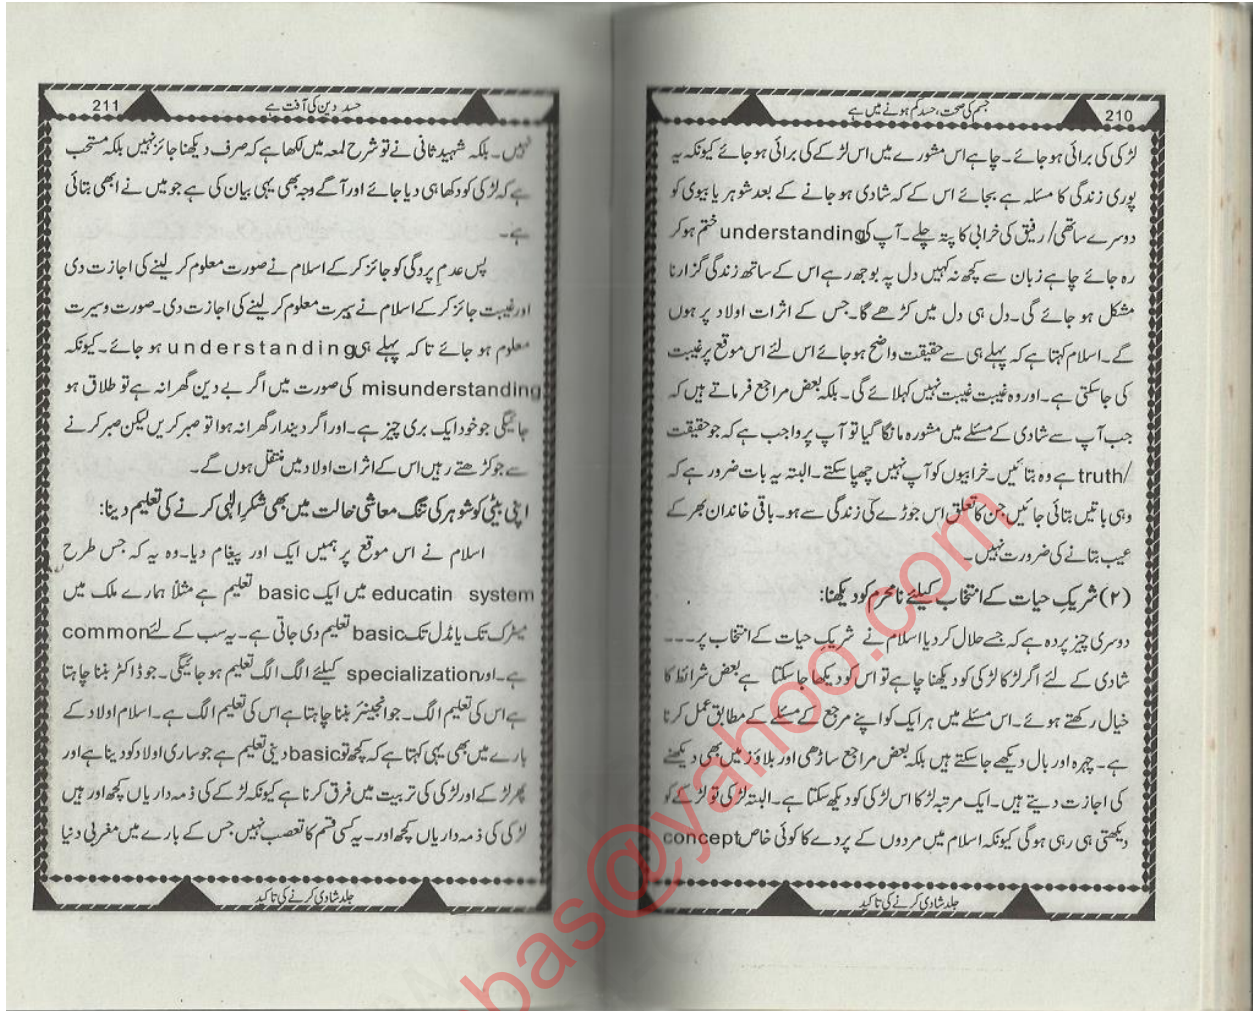 210
جسم کی صحت، حسد کم ہونے میں ہے
لڑکی کی برائی ہو جائے۔ چاہے اس مشورے میں اس لڑکے کی برائی ہو جائے کیونکہ یہ
پوری زندگی کا مسئلہ ہے بجائے اس کے کہ شادی ہو جانے کے بعد شوہر یا بیوی کو
دوسرے ساتھی/رفیق کی خرابی کا پتہ چلے۔ آپ کی understanding ختم ہو کر
رہ جائے چاہے زبان سے کچھ نہ کہیں دل پہ بوجھ رہے اس کے ساتھ زندگی گزارنا
مشکل ہو جائے گی۔ دل ہی دل میں کڑھے گا۔ جس کے اثرات اولاد پر ہوں
گے۔ اسلام کہتا ہے کہ پہلے ہی سے حقیقت واضح ہو جائے اس لئے اس موقع پر غیبت
کی جا سکتی ہے۔ اور وہ غیبت غیبت نہیں کہلائے گی۔ بلکہ بعض مراجع فرماتے ہیں کہ
جب آپ سے شادی کے مسئلے میں مشورہ مانگا گیا تو آپ پر واجب ہے کہ جو حقیقت
/truth ہے وہ بتائیں۔ خرابیوں کو آپ نہیں چھپا سکتے۔ البتہ یہ بات ضرور ہے کہ
وہی باتیں بتائی جائیں جن کا تعلق اس جوڑے کی زندگی سے ہو۔ باقی خاندان بھر کے
عیب بتانے کی ضرورت نہیں۔
(۲) شریکِ حیات کے انتخاب کیلئے نامحرم کو دیکھنا:
دوسری چیز پردہ ہے کہ جسے حلال کر دیا اسلام نے شریکِ حیات کے انتخاب پر۔۔۔
شادی کے لئے اگر لڑکا لڑکی کو دیکھنا چاہے تو اس کو دیکھا جا سکتا ہے بعض شرائط کا
خیال رکھتے ہوئے۔ اس مسئلے میں ہر ایک کو اپنے مرجع کے مسئلے کے مطابق عمل کرنا
ہے۔ چہرہ اور بال دیکھے جا سکتے ہیں بلکہ بعض مراجع ساڑھی اور بلاؤز میں بھی دیکھنے
کی اجازت دیتے ہیں۔ ایک مرتبہ لڑکا اس لڑکی کو دیکھ سکتا ہے۔ البتہ لڑکی تو لڑکے کو
دیکھتی ہی رہی ہوگی کیونکہ اسلام میں مردوں کے پردے کا کوئی خاص concept
جلد شادی کرنے کی تاکید
211
حسد دین کی آفت ہے
نہیں۔ بلکہ شہید ثانی نے تو شرح لمعہ میں لکھا ہے کہ صرف دیکھنا جائز نہیں بلکہ مستحب
ہے کہ لڑکی کو دکھا ہی دیا جائے اور آگے وجہ بھی یہی بیان کی ہے جو میں نے ابھی بتائی
ہے۔
پس عدمِ پردگی کو جائز کر کے اسلام نے صورت معلوم کر لینے کی اجازت دی
اور غیبت جائز کر کے اسلام نے سیرت معلوم کر لینے کی اجازت دی۔ صورت و سیرت
معلوم ہو جائے تا کہ پہلے ہی understanding ہو جائے۔ کیونکہ
misunderstanding کی صورت میں اگر بے دین گھرانہ ہے تو طلاق ہو
جائیگی جو خود ایک بری چیز ہے۔ اور اگر دیندار گھرانہ ہوا تو صبر کریں لیکن صبر کرنے
سے جو کڑھتے رہیں اس کے اثرات اولاد میں منتقل ہوں گے۔
اپنی بیٹی کو شوہر کی تنگ معاشی حالت میں بھی شکرِ الٰہی کرنے کی تعلیم دینا:
اسلام نے اس موقع پر ہمیں ایک اور پیغام دیا۔ وہ یہ کہ جس طرح
educatin system میں ایک basic تعلیم ہے مثلاً ہمارے ملک میں
میٹرک تک یا مڈل تک basic تعلیم دی جاتی ہے۔ یہ سب کے لئے common
ہے۔ اور specialization کیلئے الگ الگ تعلیم ہو جائیگی۔ جو ڈاکٹر بننا چاہتا
ہے اس کی تعلیم الگ۔ جو انجینئر بننا چاہتا ہے اس کی تعلیم الگ ہے۔ اسلام اولاد کے
بارے میں بھی یہی کہتا ہے کہ کچھ تو basic دینی تعلیم ہے جو ساری اولاد کو دینا ہے اور
پھر لڑکے اور لڑکی کی تربیت میں فرق کرنا ہے کیونکہ لڑکے کی ذمہ داریاں کچھ اور ہیں
لڑکی کی ذمہ داریاں کچھ اور۔ یہ کسی قسم کا تعصب نہیں جس کے بارے میں مغربی دنیا
جلد شادی کرنے کی تاکید
bas@yahoo.com